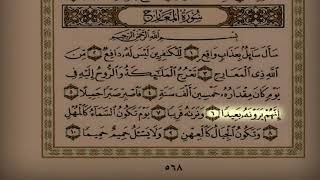 سُورَةُ المَعَارِجِ
بِسْمِ اللَّهِ الرَّحْمَٰنِ الرَّحِيمِ
سَأَلَ سَائِلٌ بِعَذَابٍ وَاقِعٍ ١ لِّلْكَافِرِينَ لَيْسَ لَهُ دَافِعٌ ٢ مِّنَ
اللَّهِ ذِي الْمَعَارِجِ ٣ تَعْرُجُ الْمَلَائِكَةُ وَالرُّوحُ إِلَيْهِ فِي
يَوْمٍ كَانَ مِقْدَارُهُ خَمْسِينَ أَلْفَ سَنَةٍ ٤ فَاصْبِرْ صَبْرًا جَمِيلًا ٥
إِنَّهُمْ يَرَوْنَهُ بَعِيدًا ٦ وَنَرَاهُ قَرِيبًا ٧ يَوْمَ تَكُونُ السَّمَاءُ كَالْمُهْلِ
٨ وَتَكُونُ الْجِبَالُ كَالْعِهْنِ ٩ وَلَا يَسْأَلُ حَمِيمٌ حَمِيمًا ١٠
٥٦٨